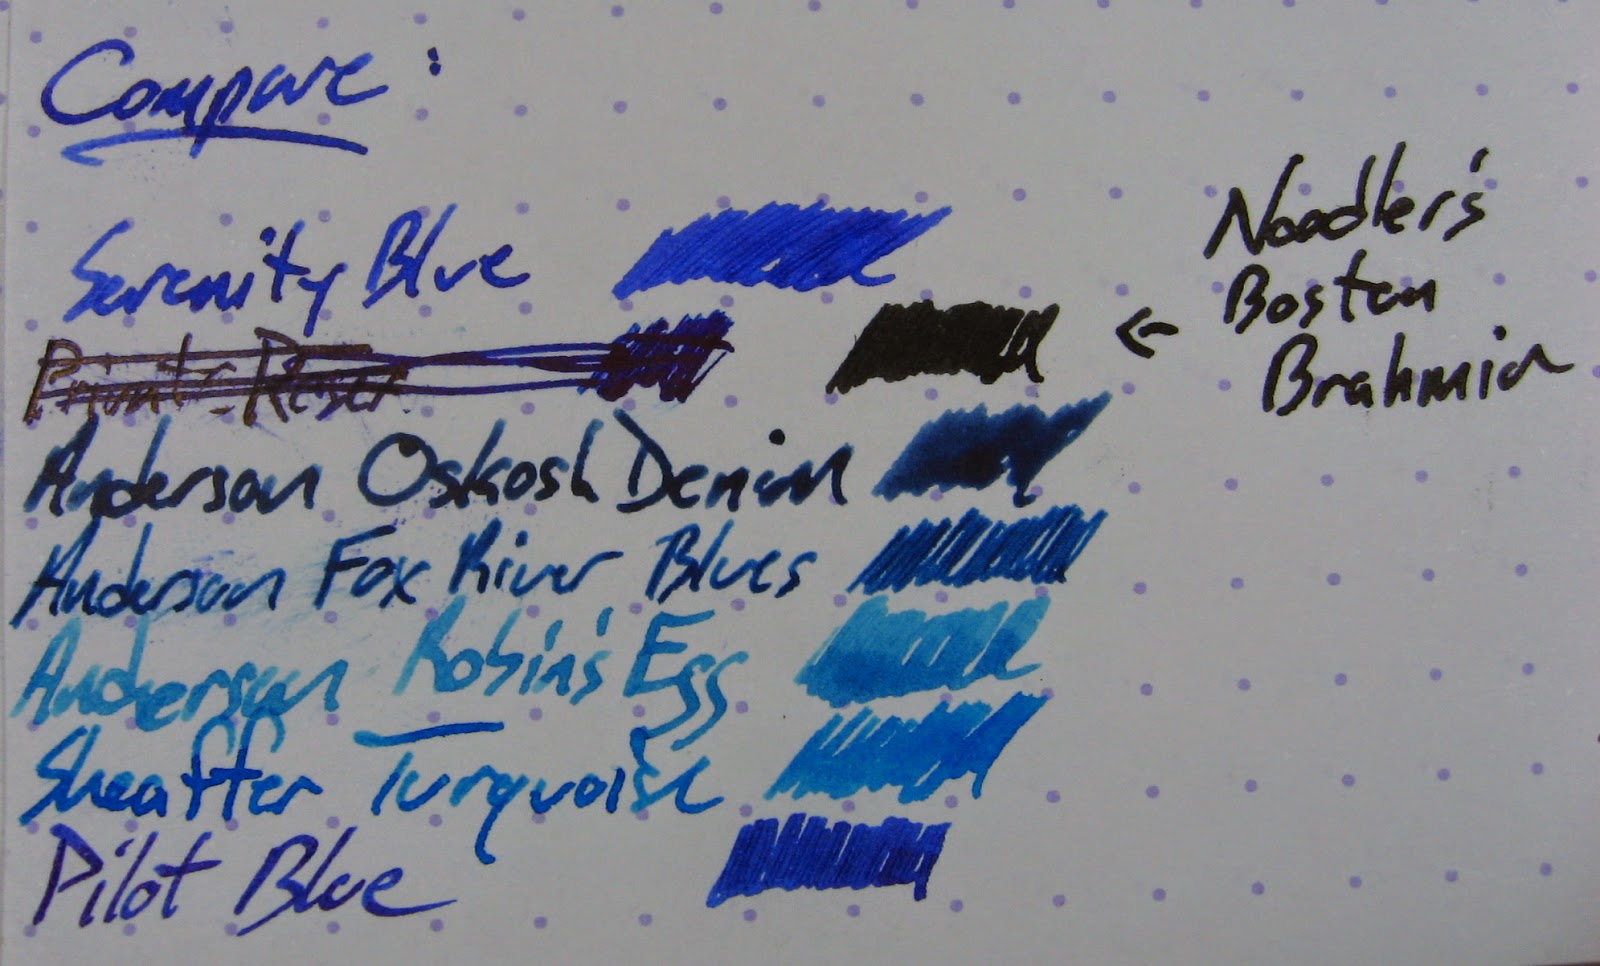 Compare:
Serenity Blue
Private Reser
Anderson Oskosh Denim
Anderson Fox River Blues
Anderson Robin's Egg
Sheaffer Turquoise
Pilot Blue
← Noodler's
Boston
Brahmin